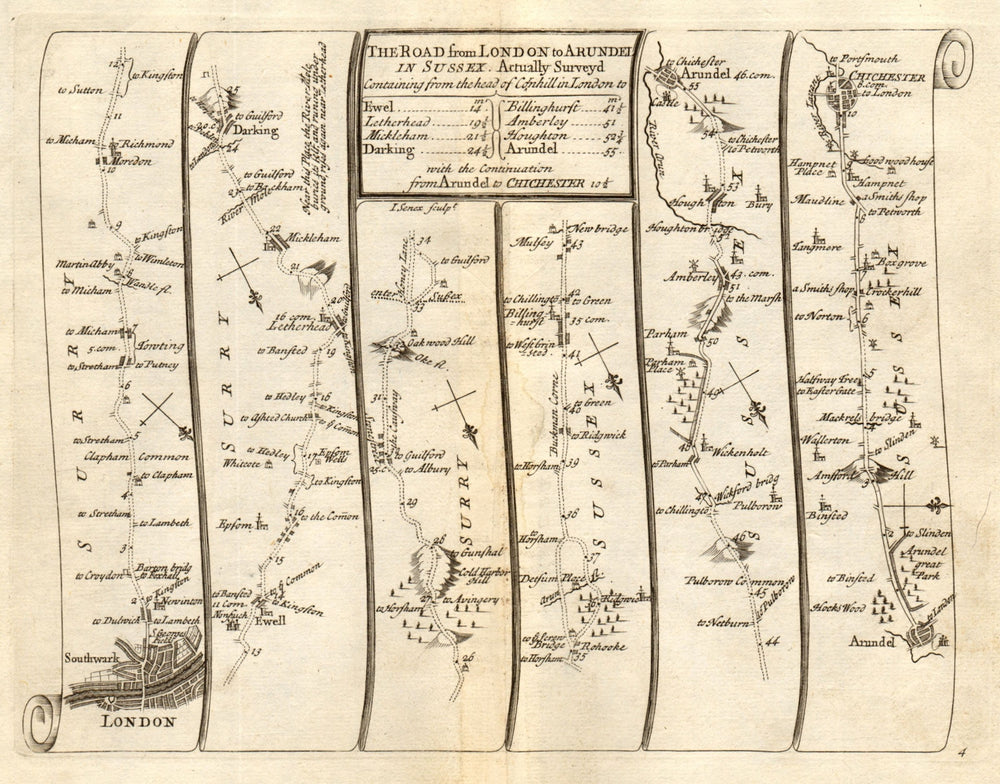 THE ROAD from LONDON to ARUNDEL
IN SUSSEX. Actually Survey'd
Containing from the head of Cornhill in London to
Ewel 14
Letherhead 19½
Mickleham 21½
Darking 24½
Billinghurst 41½
Amberley 51
Houghton 52¾
Arundel 55
with the Continuation
from Arundel to CHICHESTER 10½
I Senex sculpt.
12
to Kingston
to Sutton
11
to Micham
to Richmond
Moredon
10
9
to Kingston
Martin Abby
to Wimleton
8
Wandle fl.
to Micham
to Micham
7
5.com
Towting
to Stretham
to Putney
6
to Stretham
5
Clapham Common
to Clapham
4
to Stretham
to Lambeth
3
to Croydon
Barton bridg
to Foxhall
to Kingston
2
Newinton
to Dulwick
to Lambeth
St. Georges
Fields
Southwark
LONDON
SURRY
25
to Guilford
Darking
24
to London
Near this Place the River Mole
buries its self and runing under
ground, rises again near Letherhead
to Guilford
23
to Backham
River Mole
22
Mickleham
21
20
16 com
Letherhead
19
to Bansted
to Hedley
18
to Kingston
to Ashted Church
to ye Comon
to Hedley
17
Epsom
Well
Whitcote
to Kingston
16
to the Comon
Epsom
15
to ye Common
to Bansted
11 Com
14
to Kingston
Nonsuch
Ewell
13
SURRY
34
Lacey Lane
to Guilford
enter
Sussex
33
Oakwood Hill
Oke R.
31
Stonestreet
to Guilford
25.c
to Albury
29
28
to Gunshal
Cold Harbor
Hill
27
to Avingery
to Horsham
26
SURRY
New bridge
Mulsey
43
42
to Chillington
to Green
Billing
=hurst
35 com.
to Westgrin
sted
41
to Green
Buckman Corne
40
to Ridgwick
39
to Horsham
38
to Horsham
37
Detsum Place
Arun
36
Ridgwick
to Gferen
Bridge
Rohooke
to Horsham
35
SUSSEX
to Chichester
Arundel 46.com.
55
Castle
River Arun
54
to Chichester
to Petworth
53
Houghton
Bury
Houghton bridge
52
Amberley
43.com.
51
to the Marsh
Parham
50
Parham
Place
49
48
Wickenholt
to Parham
47
Wickford bridg
to Chillington
Pulborow
46
Pulborow Common
45
to Pulborow
to Netburn
44
SUSSEX
to Portsmouth
CHICHESTER
8.com.
to London
10
River Lavant
Goodwood house
Hampnet
Place
Hampnet
a Smiths shop
Maudline
to Petworth
Tangmere
Boxgrove
a Smiths shop
Crockerhill
to Norton
6
5
Halfway Tree
to Eastergate
Mackrels bridge
4
Wallerton
to Slinden
Amsford Hill
3
Binsted
2
to Slinden
Arundel
great
Park
to Binsted
Hocks Wood
to London
Arundel
SUSSEX
4